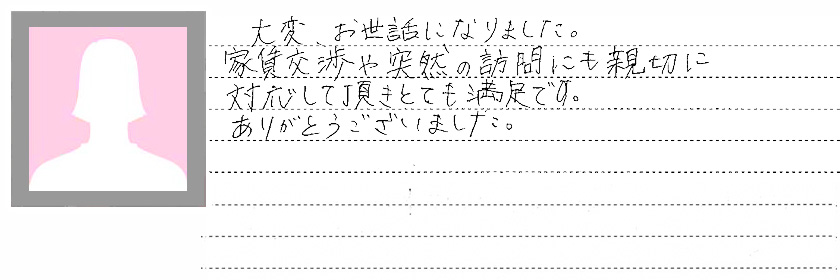 大変、お世話になりました。
家賃交渉や突然の訪問にも親切に
対応して頂きとても満足です。
ありがとうございました。